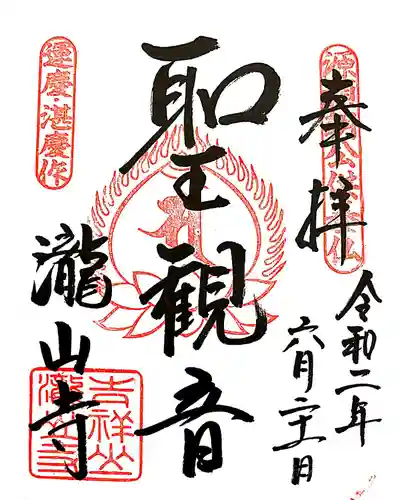 源頼朝公供養仏
奉拝
令和二年
六月二十一日
聖観音
運慶・湛慶作
瀧山寺
吉祥山
瀧山寺